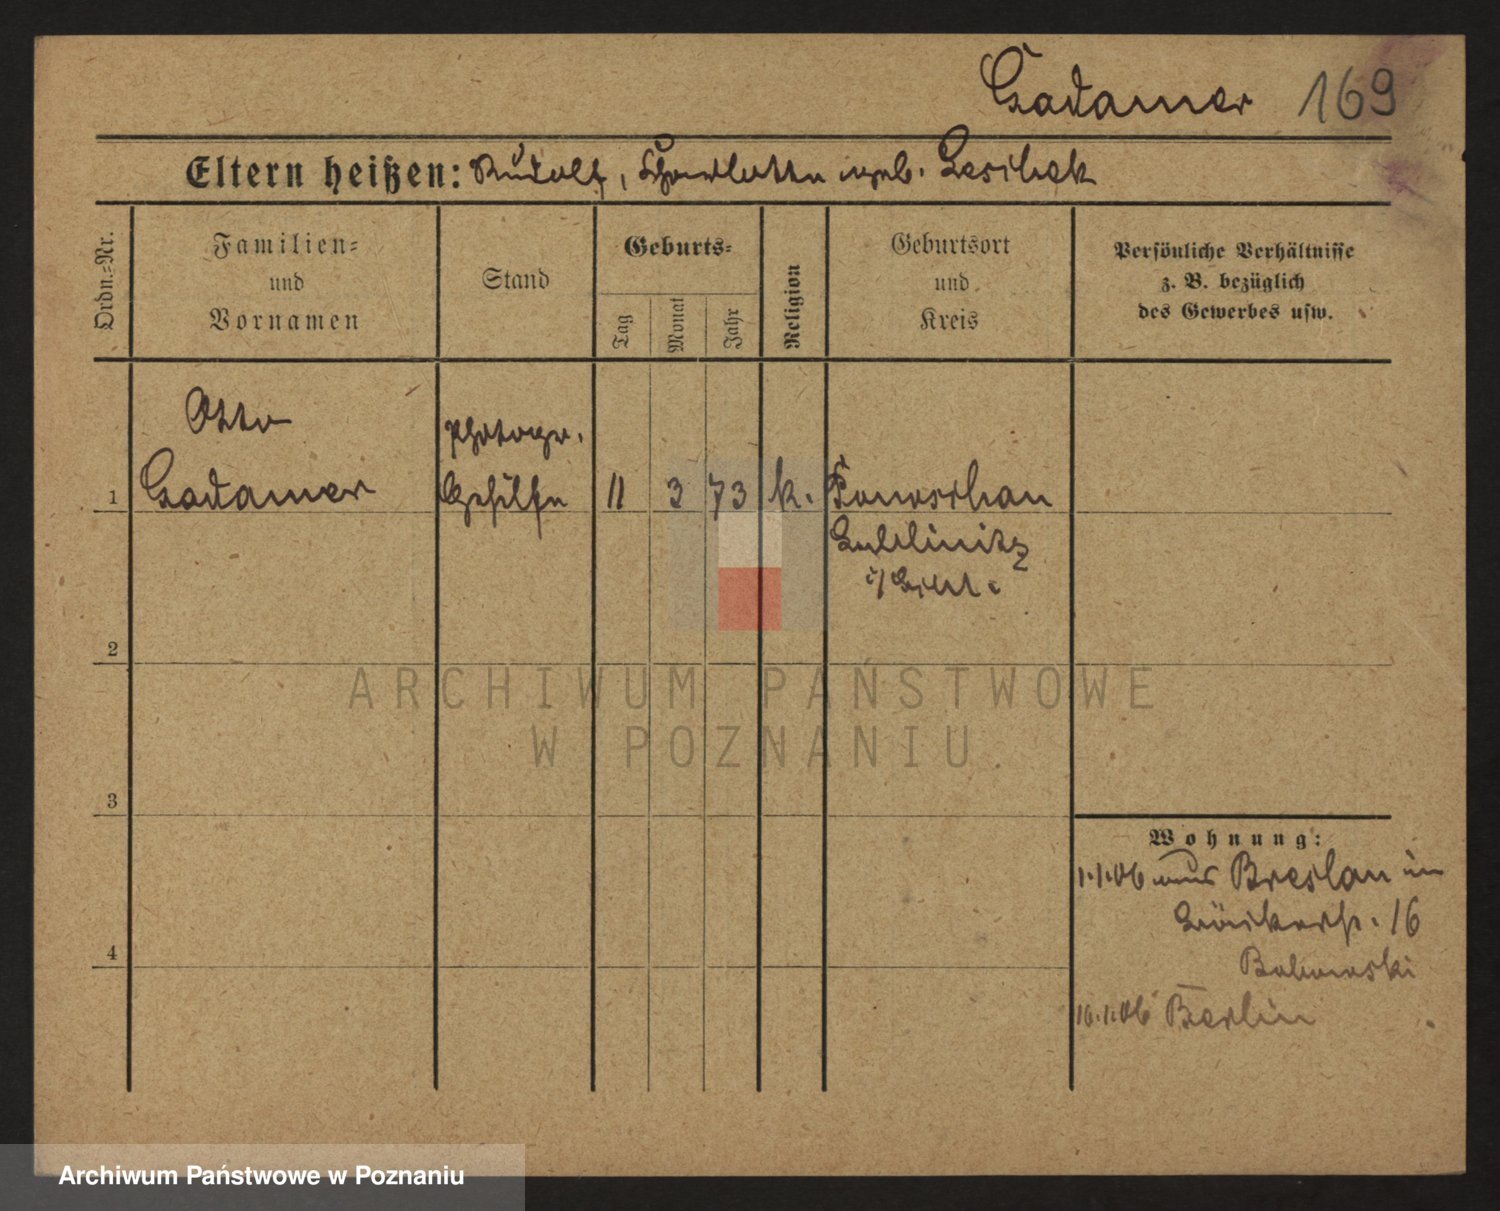 Gadamer 169
Eltern heißen: Rudolf, Charlotte geb.
Ordn.=Nr.
Familien=
und
Vornamen
Stand
Geburts=
Tag
Monat
Jahr
Religion
Geburtsort
und
Kreis
Persönliche Verhältnisse
z. B. bezüglich
des Gewerbes usw.
Otto
Photogr.
1 Gadamer Gehilfe 11 3 73 k. Ponoschau
Lublinitz
2
3
4
Wohnung:
1.1.06 aus Breslau in
16
Bukowski
10.1.06 Berlin
ARCHIWUM PAŃSTWOWE
W POZNANIU
Archiwum Państwowe w Poznaniu